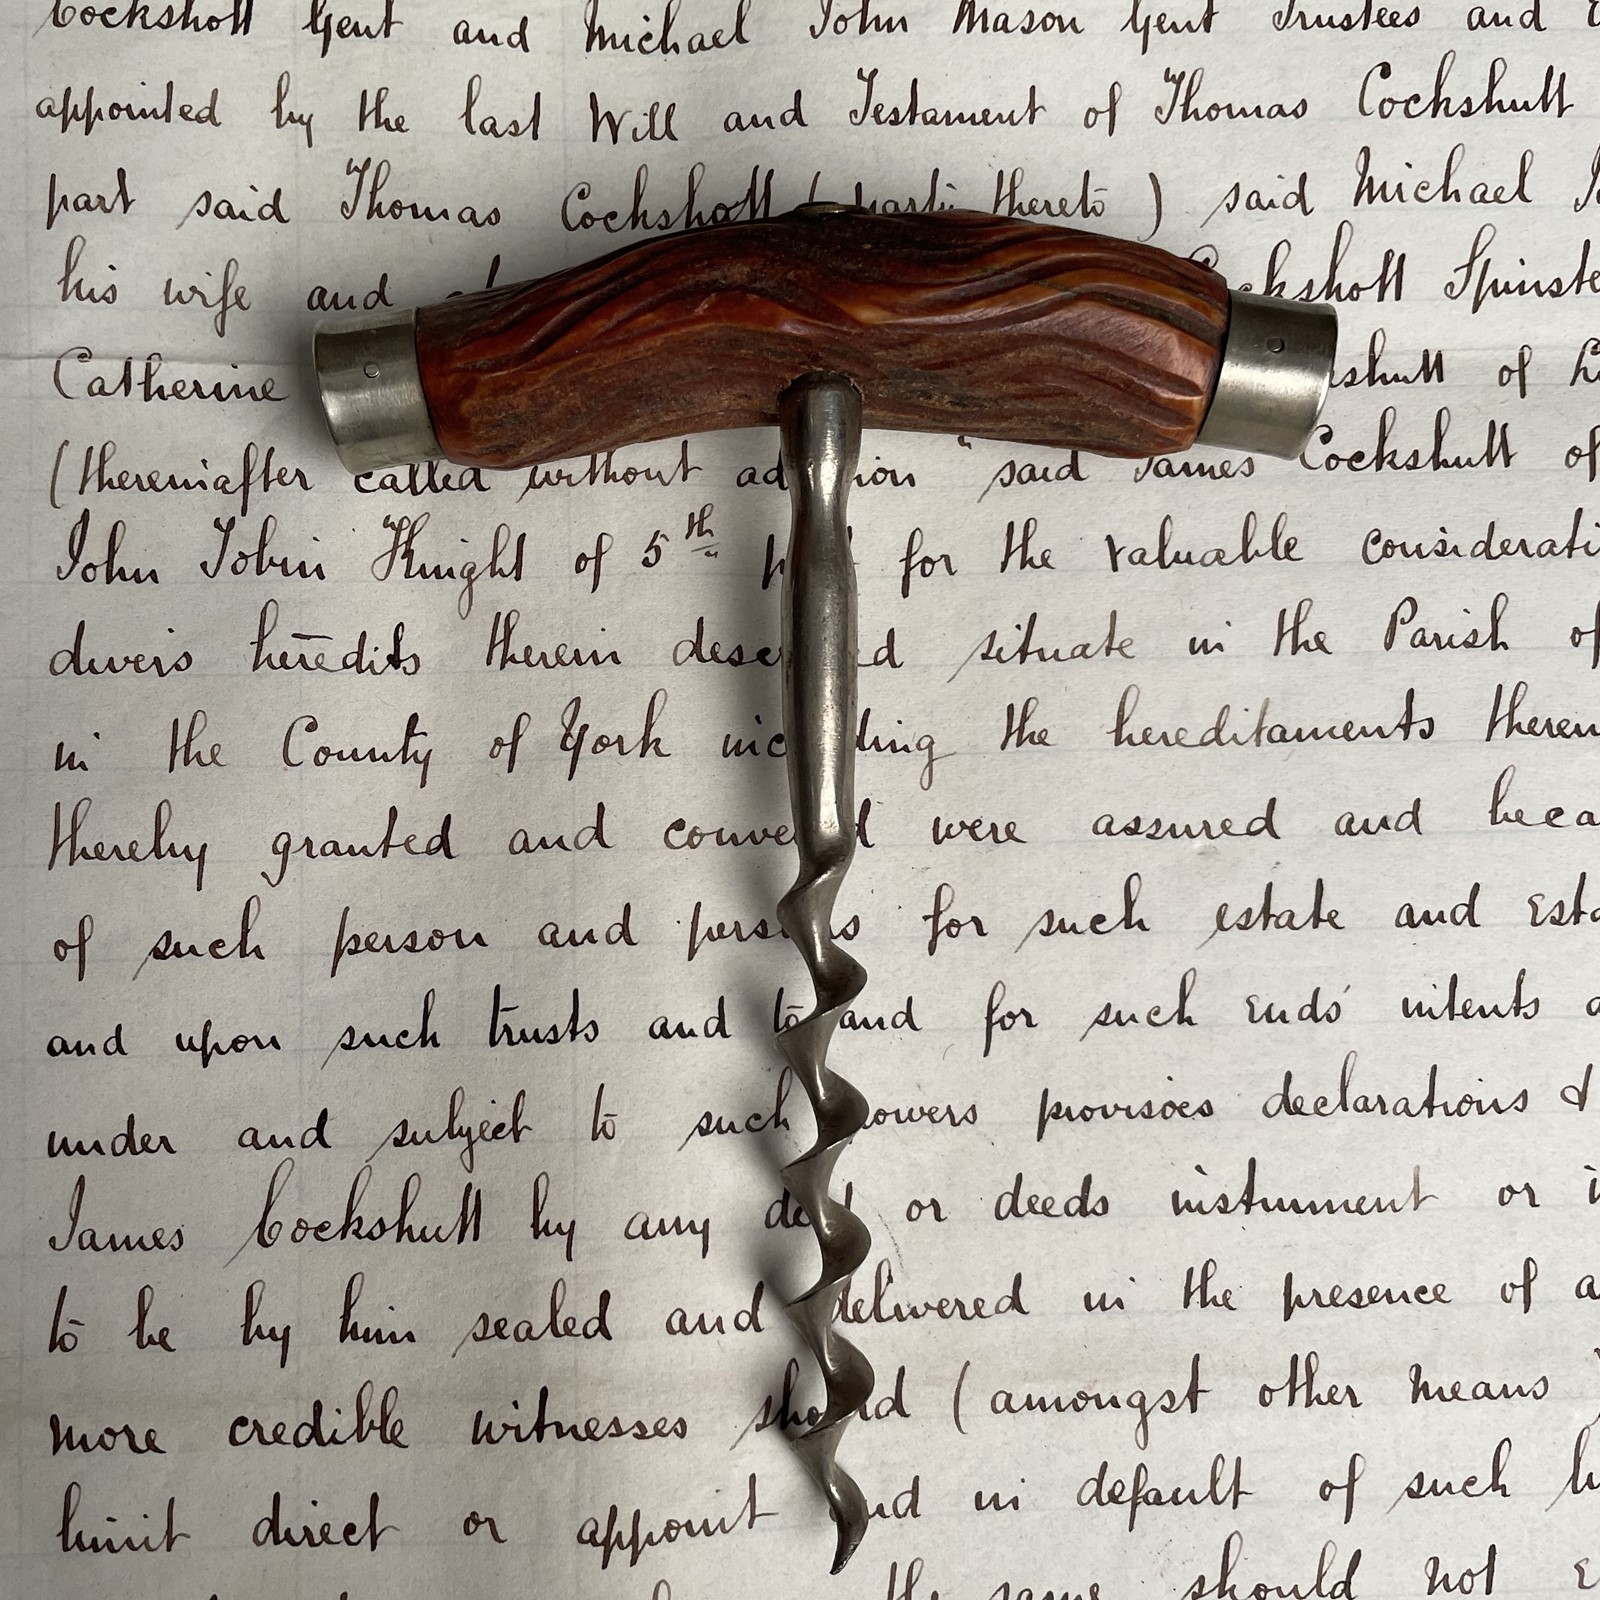 Cockshott Gent and Michael John Mason Gent Trustees and
appointed by the last Will and Testament of Thomas Cockshutt
part said Thomas Cockshott ( party thereto ) said Michael
his wife and Cockshott Spinste
Catherine shutt of
(thereinafter called without ad ion " said James Cockshutt of
John Tobin Knight of 5th p for the valuable considerati
divers heredits therein desc d situate in the Parish of
in the County of York inc ding the hereditaments therein
thereby granted and conve d were assured and beca
of such person and pers s for such estate and Esta
and upon such trusts and to and for such Ends intents a
under and subject to such powers provisoes declarations &
James Cockshutt by any deed or deeds instrument or i
to be by him sealed and delivered in the presence of a
more credible witnesses should (amongst other means )
limit direct or appoint and in default of such li
the same should not E